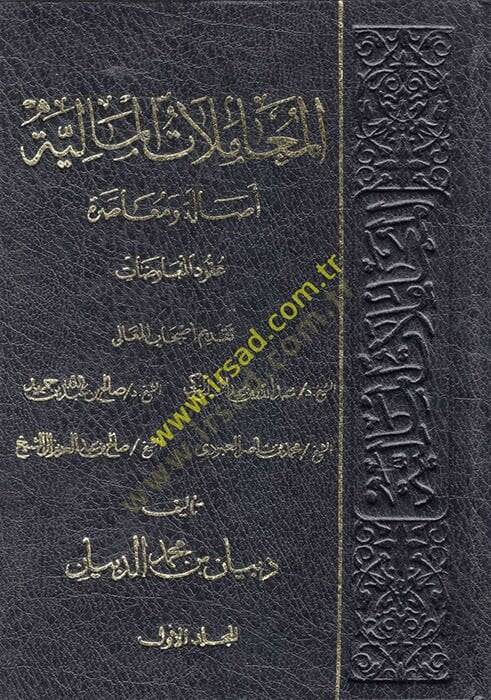 المعاملات المالية
أصالة ومعاصرة
عقود المعاوضات
تقديم أصحاب المعالي
الشيخ. د/ عبدالله بن عبد المحسن التركي الشيخ. د/ صالح بن عبدالله بن حميد
الشيخ/ محمد بن ناصر العبودي الشيخ/ صالح بن عبد العزيز آل الشيخ
تأليف
دبيان بن محمد الدبيان
المجلد الأول
المعاملات المالية
www.irsad.com.tr